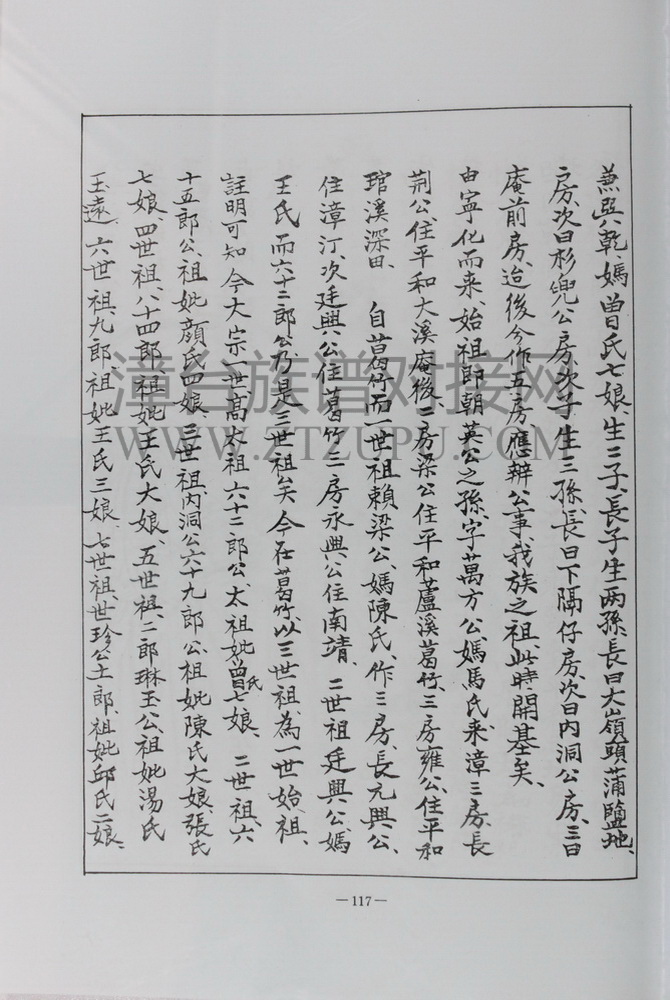 兼與乾、媽曾氏七娘、生二子、長子生两孫、長曰大嶺頭蒲鹽地、
房、次曰杉兜公房、次子生三孫、長曰下隔仔房、次曰内洞公房、三曰
庵前房、迨後分作五房、應辦公事、我族之祖、此時開基矣、
由寧化而来、始祖郎朝英公之孫、字萬方公、媽馬氏、来漳三房、長
荆公、住平和大溪庵後、二房梁公住平和蘆溪葛竹、三房雍公、住平和
琯溪深田、 自葛竹而一世祖賴梁公、媽陳氏、作三房、長元興公、
住漳汀、次廷興公住葛竹、二房永興公住南靖、二世祖廷興公、媽
王氏、而六十二郎公乃是三世祖矣、今在葛竹、以三世祖為一世始祖、
註明可知、今大宗一世高太祖六十二郎公、太祖妣曾氏七娘、 二世祖、六
十五郎公、祖妣顔氏四娘、三世祖内洞公六十九郎公、祖妣陳氏大娘、張氏
七娘、四世祖、八十四郎、祖妣王氏大娘、五世祖、二郎琳玉公、祖妣湯氏
玉遠、六世祖、九郎、祖妣王氏三娘、七世祖、世珍公土郎、祖妣邱氏二娘、
漳台族谱对接网
WWW.ZTZUPU.COM
—117—